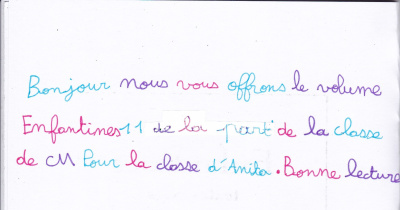 Bonjour nous vous offrons le volume
Enfantimes 11 de la part de la classe
de CM Pour la classe d'Anita. Bonne lecture